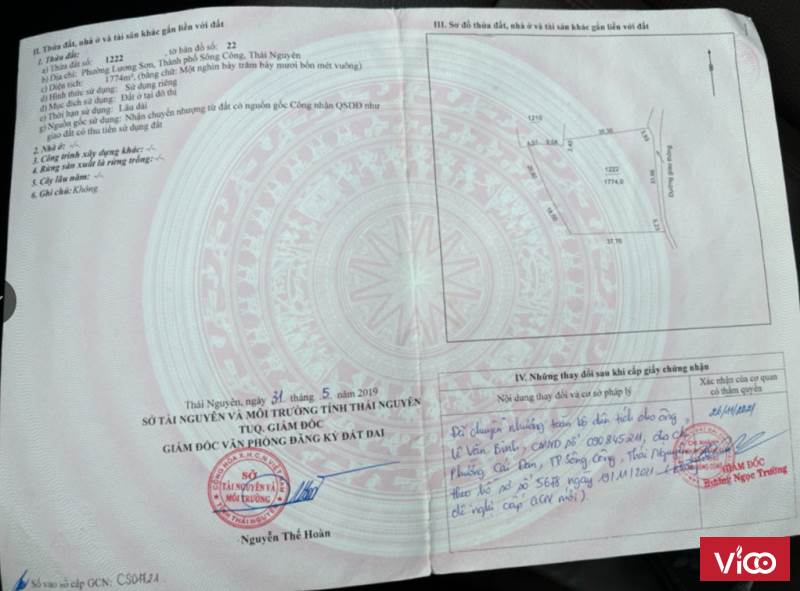 II. Thửa đất, nhà ở và tài sản khác gắn liền với đất
1. Thửa đất:
a) Thửa đất số: 1222 , tờ bản đồ số: 22
b) Địa chỉ: Phường Lương Sơn, Thành phố Sông Công, Thái Nguyên
c) Diện tích: 1774m², (bằng chữ: Một nghìn bảy trăm bảy mươi bốn mét vuông)
d) Hình thức sử dụng: Sử dụng riêng
đ) Mục đích sử dụng: Đất ở tại đô thị
e) Thời hạn sử dụng: Lâu dài
g) Nguồn gốc sử dụng: Nhận chuyển nhượng từ đất có nguồn gốc Công nhận QSDĐ như
giao đất có thu tiền sử dụng đất
2. Nhà ở: -/-
3. Công trình xây dựng khác: -/-
4. Rừng sản xuất là rừng trồng: -/-
5. Cây lâu năm: -/-
6. Ghi chú: Không
Thái Nguyên, ngày 31 tháng 5 năm 2019
SỞ TÀI NGUYÊN VÀ MÔI TRƯỜNG TỈNH THÁI NGUYÊN
TUQ. GIÁM ĐỐC
GIÁM ĐỐC VĂN PHÒNG ĐĂNG KÝ ĐẤT ĐAI
SỞ
TÀI NGUYÊN VÀ
MÔI TRƯỜNG
Nguyễn Thế Hoàn
Số vào sổ cấp GCN:
III. Sơ đồ thửa đất, nhà ở và tài sản khác gắn liền với đất
1210
1222
1774.0
37.76
IV. Những thay đổi sau khi cấp giấy chứng nhận
Nội dung thay đổi và cơ sở pháp lý
Xác nhận của cơ quan
có thẩm quyền
26/11/2021
Đã chuyển nhượng toàn bộ diện tích cho ông
Lê Văn Bình, CMND số 090845211, địa chỉ
Phường Cải Đan, TP Sông Công, Thái Nguyên
theo hồ sơ số 5678 ngày 19/11/2021
đề nghị cấp GCN mới).
GIÁM ĐỐC
Ngọc Trường
ViCO